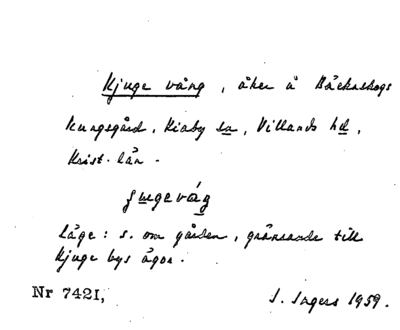 Kjuge vång, åker å Bäckaskogs
Kungsgård, Kiaby sn, Villands hd,
Krist. län.
Läge: s. om gården, gränsande till
Kjuge bys ägor.
Nr 7421,
I. Ingers 1959.